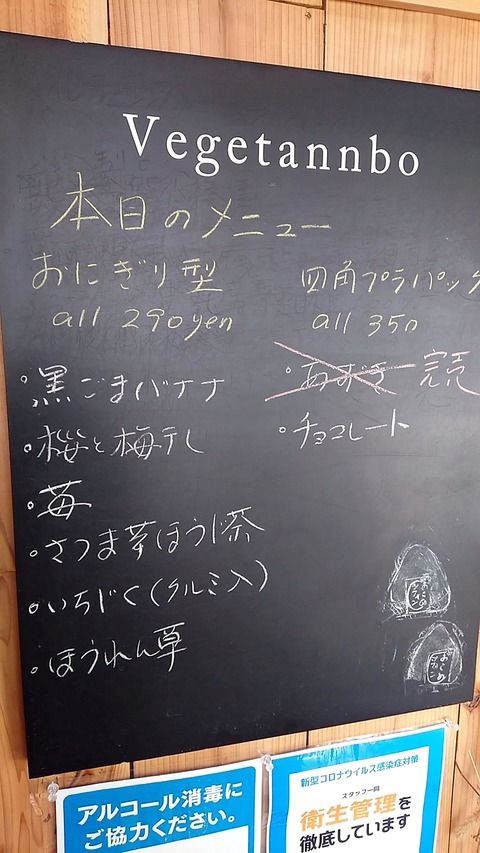 Vegetannbo
本日のメニュー
おにぎり型
all 290yen
・黒ごまバナナ
・桜と梅干し
・苺
・さつま芋ほうじ茶
・いちじく(クルミ入)
・ほうれん草
四角プラパック
all 350
・あずき 完売
・チョコレート
アルコール消毒に
ご協力ください。
新型コロナウイルス感染症対策
スタッフ一同
衛生管理を
徹底しています